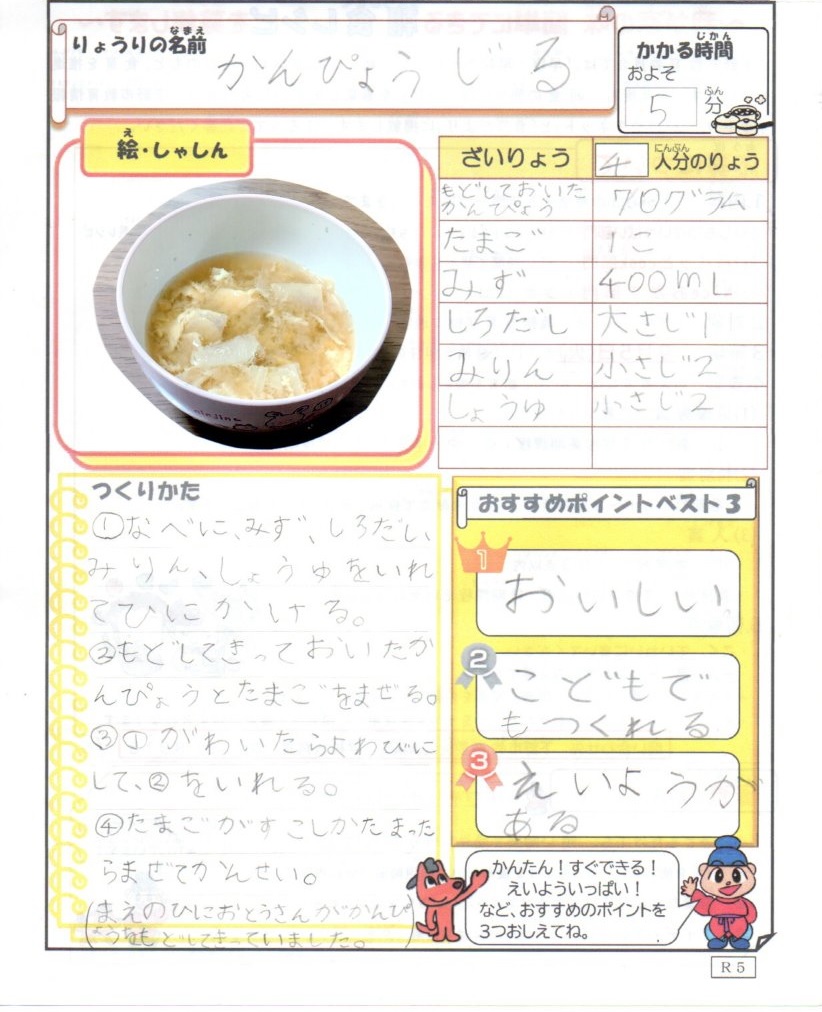 りょうりの名前
なまえ
かんぴょうじる
かかる時間
じかん
およそ
5分
ふん
絵・しゃしん
え
ざいりょう 4人分のりょう
にんぶん
もどしておいた
かんぴょう 70グラム
たまご 1こ
みず 400mL
しろだし 大さじ1
みりん 小さじ2
しょうゆ 小さじ2
つくりかた
①なべに、みず、しろだし、
みりん、しょうゆをいれ
てひにかける。
②もどしてきっておいたか
んぴょうとたまごをまぜる。
③①がわいたらよわびに
して、②をいれる。
④たまごがすこしかたまった
らまぜてかんせい。
(まえのひにおとうさんがかんぴ
ょうをもどしてきっていました。)
おすすめポイントベスト3
1
おいしい。
2
こどもで
もつくれる
3
えいようが
ある
かんたん!すぐできる!
えいよういっぱい!
など、おすすめのポイントを
3つおしえてね。
R5